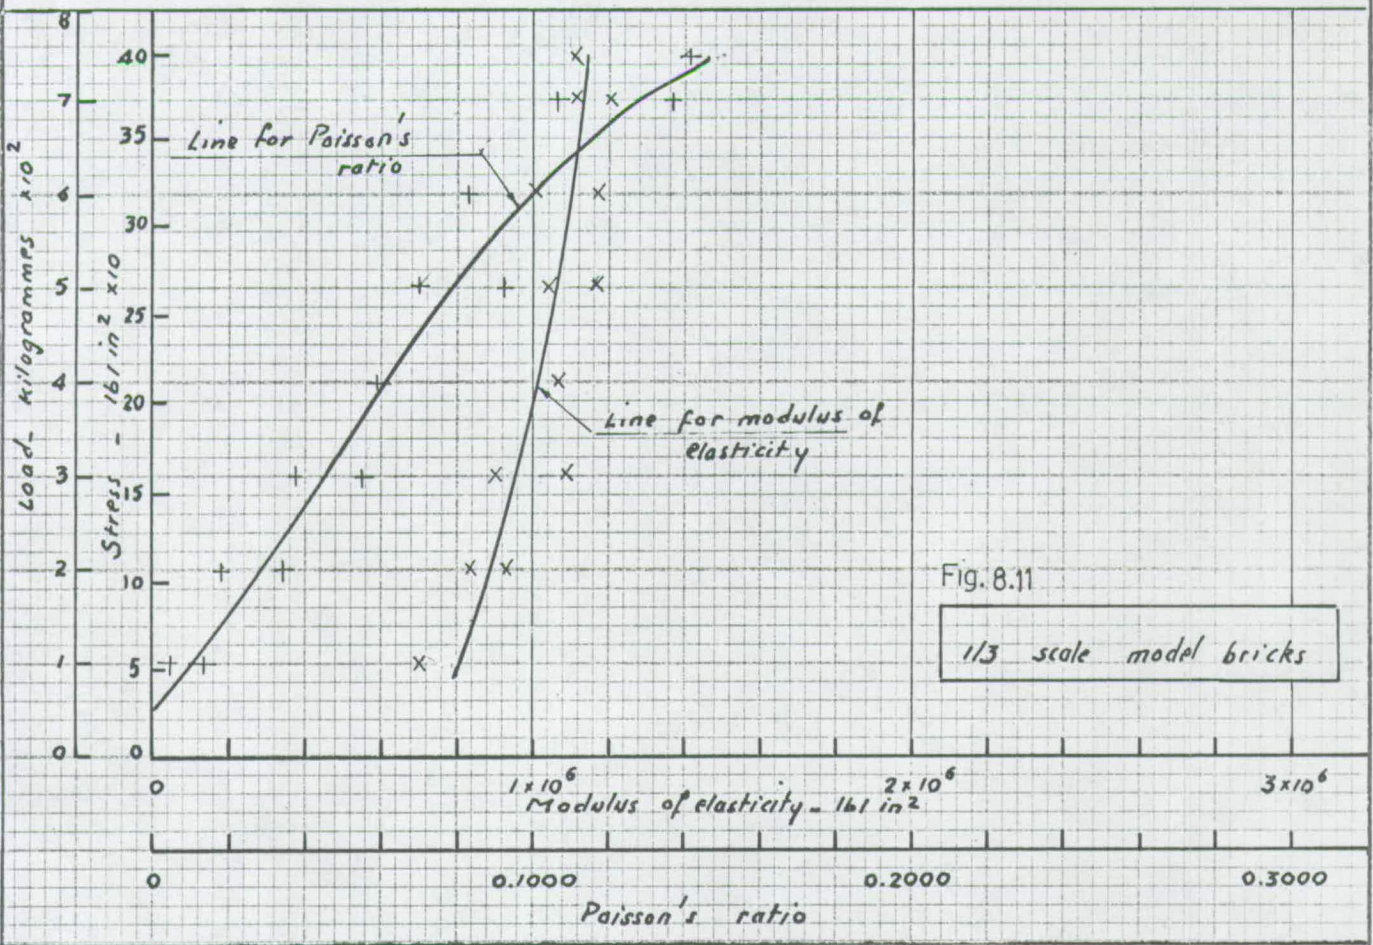 8
7
6
5
4
3
2
1
0
Load- kilogrammes x10²
40
35
30
25
20
15
10
5
0
Stress - lb/in² x10
Line for Poisson's
ratio
Line for modulus of
elasticity
Fig. 8.11
1/3 scale model bricks
0 1×10⁶ 2×10⁶ 3×10⁶
Modulus of elasticity - lb/in²
0 0.1000 0.2000 0.3000
Poisson's ratio